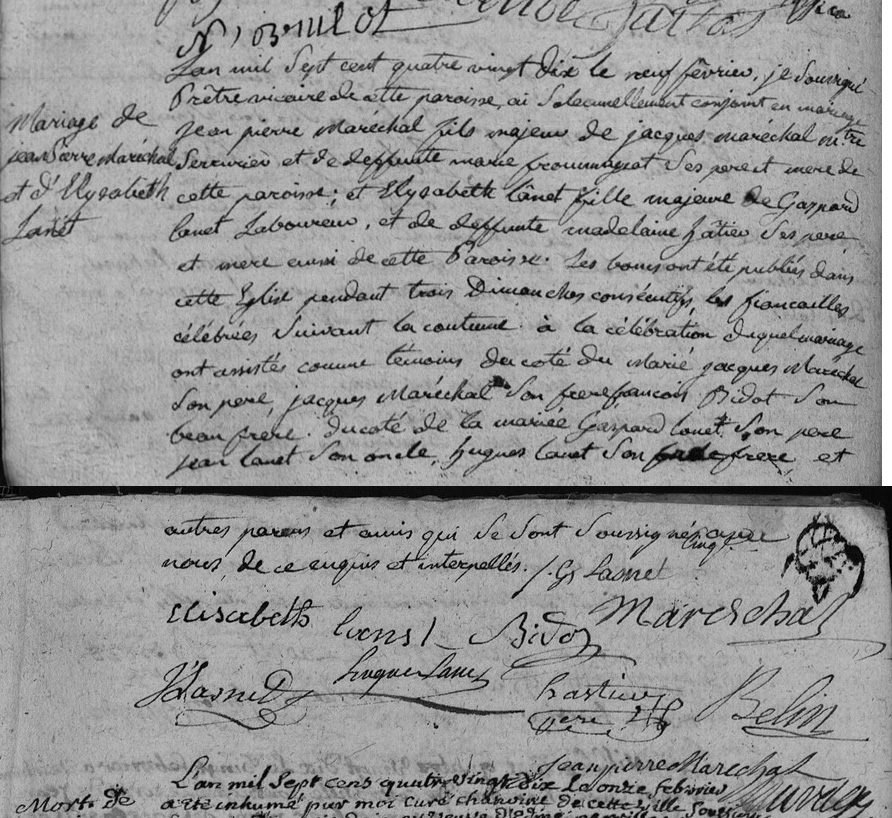 N, Brulot
Mariage de
jean Pierre Maréchal
et d'Elysabeth
Lanet
L'an mil Sept cent quatre vingt dix le neuf fêvrier, je Soussigné
Prêtre vicaire de cette paroisse, ai Solemnellement conjoint en mariage
jean pierre Maréchal fils majeur de jacques maréchal mtre
Serrurier et de deffunte marie frommagest Ses pere et mere de
cette paroisse; et Elysabeth Lânet fille majeure de Gaspard
lanet Laboureur, et de deffunte madelaine hâtier Ses pere
et mere aussi de cette Paroisse. Les bans ont été publiés dans
cette Eglise pendant trois Dimanches consécutifs, les fiancailles
célébrées Suivant la coutume. à la célébration duquel mariage
ont assistés comme têmoins du coté du Marié jacques Maréchal
Son pere, jacques Maréchal Son frere francois Bidot Son
beau frere. du coté de la mariée Gaspard lanet Son pere
jean lanet Son oncle, hugues lanet Son frere et
autres parens et amis qui Se Sont Soussignés avec
nous, de ce enquis et interpellés. /. G Lasnet
Elisabeth Bidot Mareschal
JLasnet hugue Lanet hastier Belin
pere
Jean pierre Marechal
Mort de
L'an mil Sept cens quatre vingt dix Le onze febvrier
a été inhumé par moi curé chanoine de cette ville Soussigné